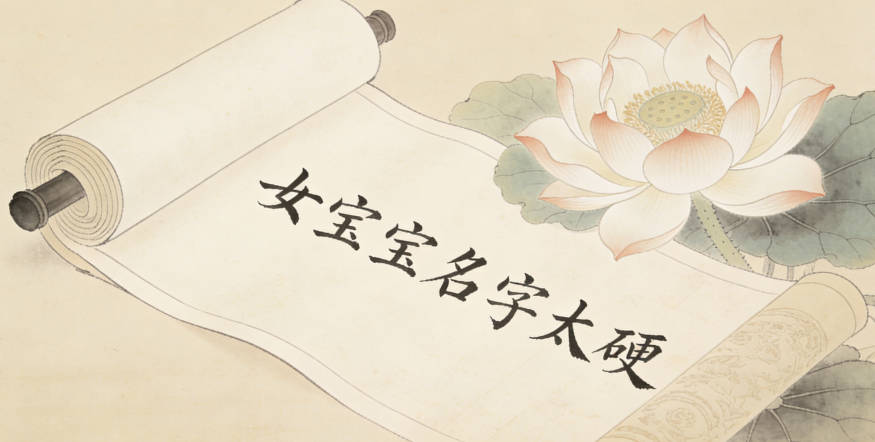 女宝宝名字太硬